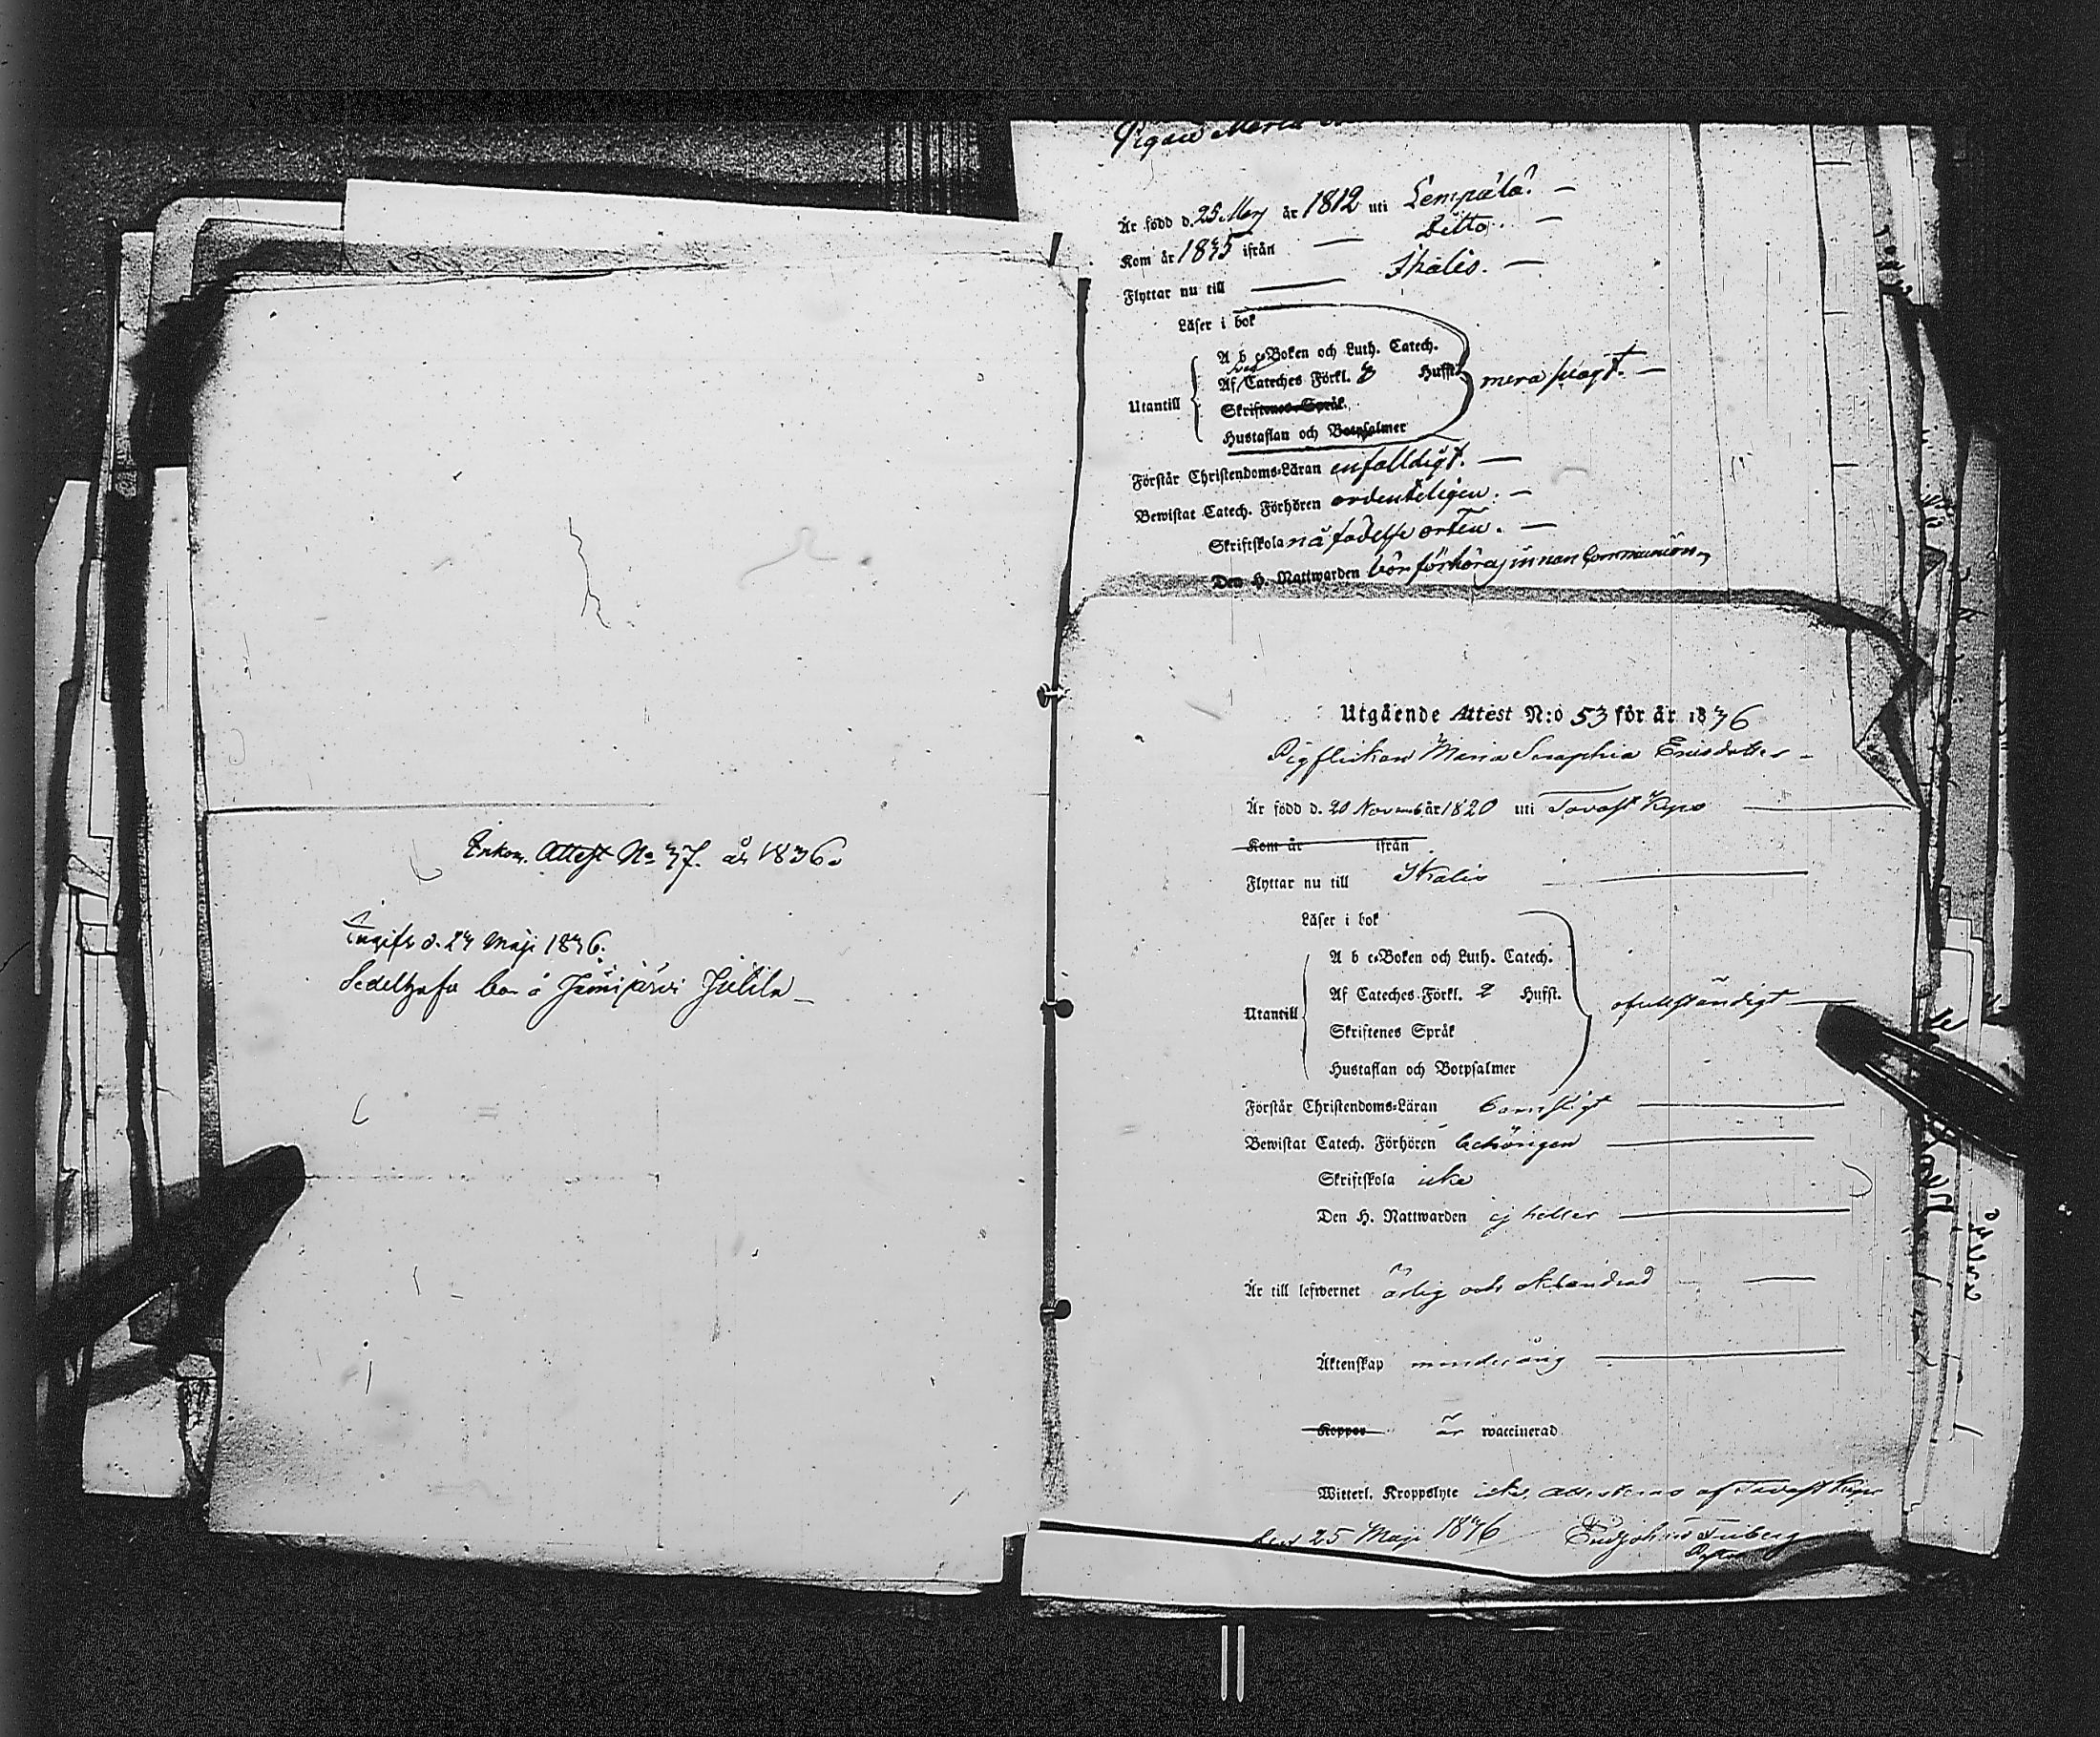 Inkom. Attest No 37. år 1836.
Ingifv d. 27 Maji 1836.
Sedelhafv. bor å Jämijärvi
Pigan Maria
Är född d. 25 Maij år 1812 uti Lempälä. —
Kom år 1835 ifrån — Ditto. —
Flyttar nu till — Ikalis. —
Läser i bok
A b c-Boken och Luth. Catech.
Af Cateches Förkl. 3 Hufst. mera svagt. —
Utantill
Skriftenes Språk.
Hustaflan och Botpsalmer
Förstår Christendoms-Läran enfalldigt. —
Bewistat Catech. Förhören ordenteligen. —
Skriftskola i födelse orten. —
Den H. Nattwarden bör förhöras innan Communion
Utgående Attest N:o 53 för år 1836
Pigflickan Maria Seraphia Ericsdotter —
Är född d. 20 Novemb år 1820 uti Tavast Kyro
Kom år ifrån
Flyttar nu till Ikalis
Läser i bok
A b c-Boken och Luth. Catech.
Af Cateches Förkl. 2 Hufst. ofullständigt —
Utantill
Skriftenes Språk
Hustaflan och Botpsalmer
Förstår Christendoms-Läran barnsligt
Bewistat Catech. Förhören behörigen
Skriftskola icke
Den H. Nattwarden ej heller
Är till lefwernet ärlig och oklandrad
Äktenskap minderårig
Koppor är waccinerad
Witterl. Kroppslyte icke, attesteras af Tavast Kyro
den 25 Maji 1836 Friberg